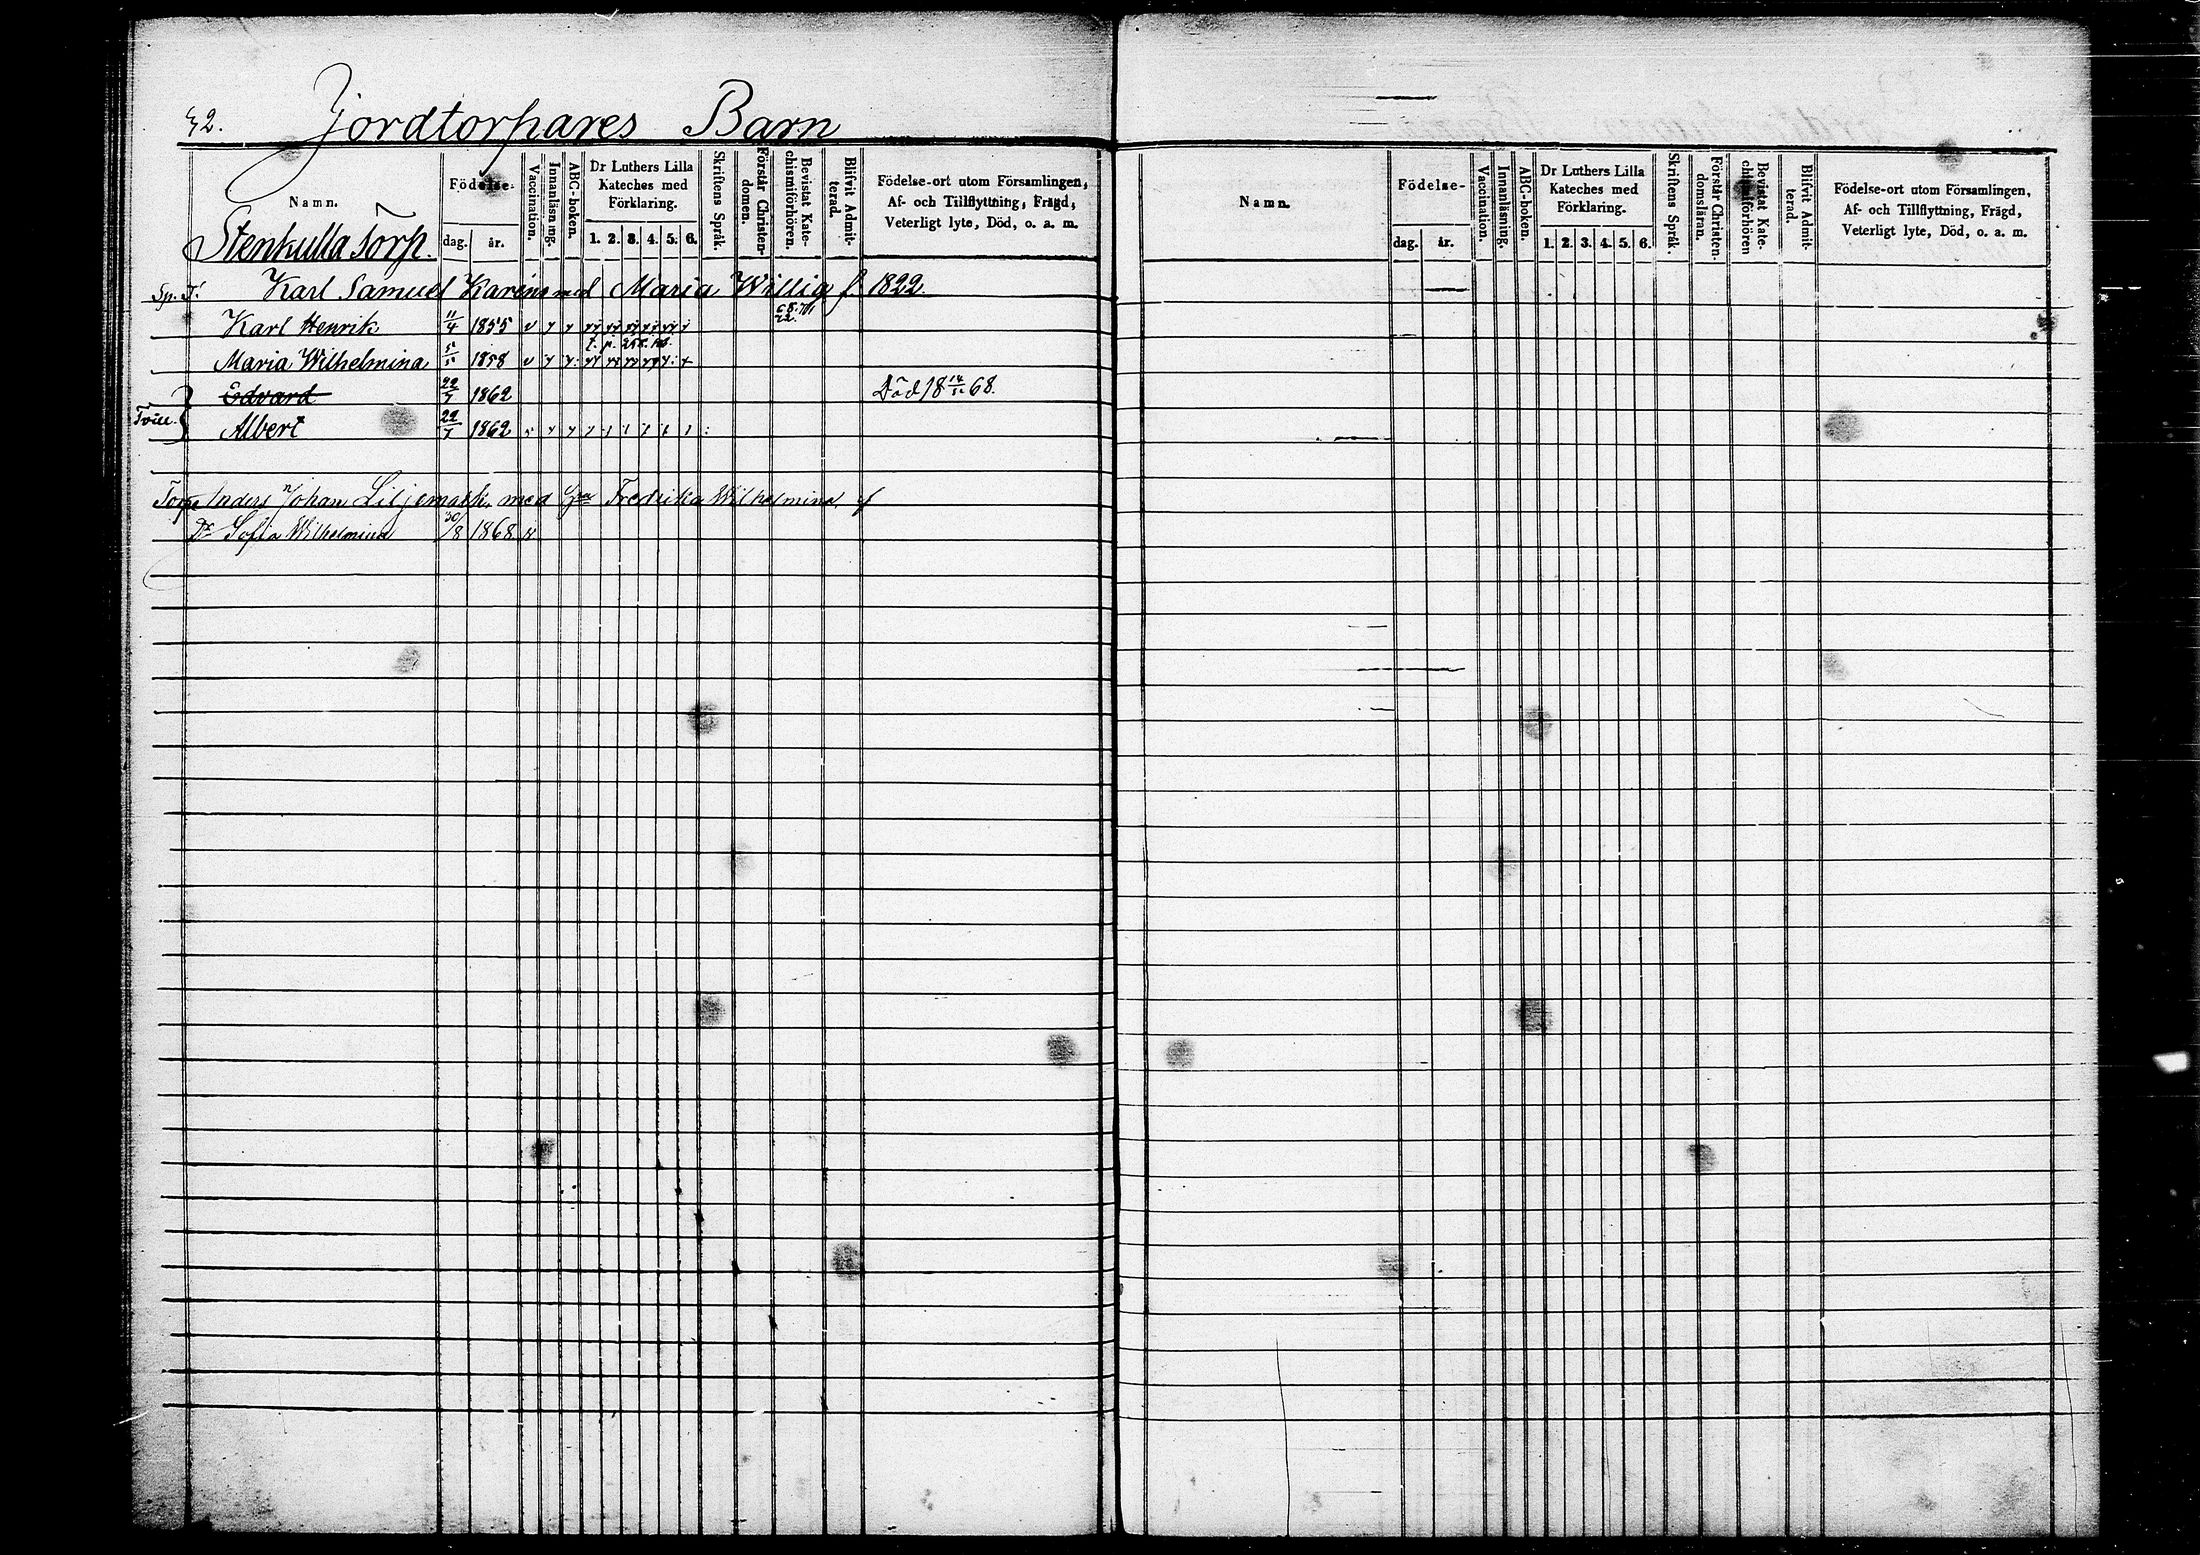 42.
Jordtorpares Barn
Namn. Födelse- dag. år. Vaccination. Innanläsning. ABC-boken. Dr Luthers Lilla Kateches med Förklaring. 1. 2. 3. 4. 5. 6. Skriftens Språk. Förstår Christendomen. Bevistat Katechismiförhören. Blifvit Admitterad. Födelse-ort utom Församlingen, Af- och Tillflyttning, Frägd, Veterligt lyte, Död, o. a. m.
Stenkulla Torp.
Sp. T. Karl Samuel Karens med Maria Willig f. 1822.
Karl Henrik 11/4 1855
Maria Wilhelmina 5/5 1858
Edvard 22/7 1862 Död 18 14/51 68.
Tvill. Albert 22/7 1862
Torp. Anders Johan Liljemark, med Fredrika Wilhelmina f
Dr Sofia Wilhelmina 30/8 1868
Namn. Födelse- dag. år. Vaccination. Innanläsning. ABC-boken. Dr Luthers Lilla Kateches med Förklaring. 1. 2. 3. 4. 5. 6. Skriftens Språk. Förstår Christendomsläran. Bevistat Katechismiförhören Blifvit Admitterad. Födelse-ort utom Församlingen, Af- och Tillflyttning, Frägd, Veterligt lyte, Död, o. a. m.